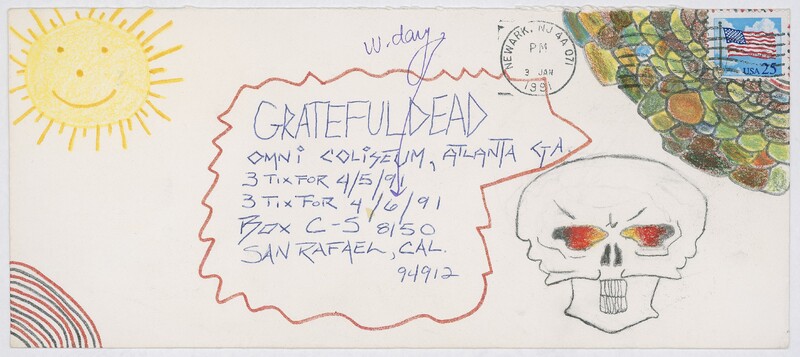 W. day
NEWARK, NJ 4A 071
PM
3 JAN
1991
USA 25
GRATEFUL DEAD
OMNI COLISEUM, ATLANTA GA.
3 TIX FOR 4/5/91
3 TIX FOR 4/6/91
BOX C-S 8150
SAN RAFAEL, CAL.
94912